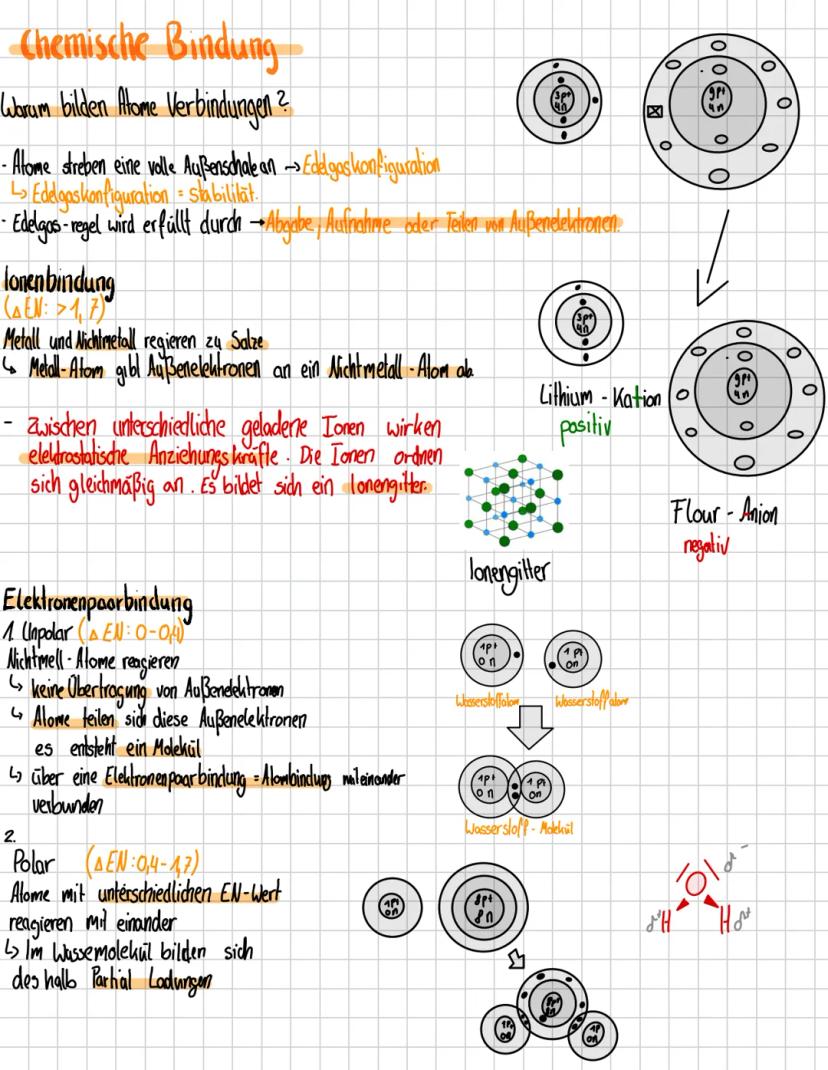 Chemische Bindung
Warum bilden Atome Verbindungen?
- Atome streben eine volle Außenschale an → Edelgaskonfiguration
↳ Edelgaskonfiguration = Stabilität.
- Edelgas-regel wird erfüllt durch → Abgabe, Aufnahme oder Teilen von Außenelektronen.
3p+
4n
9p+
4n
Ionenbindung
(ΔEN: >1,7)
Metall und Nichtmetall regieren zu Salze
↳ Metall-Atom gibt Außenelektronen an ein Nichtmetall-Atom ab.
- Zwischen unterschiedliche geladene Ionen wirken
elektrostatische Anziehungskräfte. Die Ionen ordnen
sich gleichmäßig an. Es bildet sich ein Ionengitter.
3p+
4n
Lithium - Kation
positiv
9p+
4n
Flour - Anion
negativ
Ionengitter
Elektronenpaarbindung
1. Unpolar (ΔEN: 0-0,4)
Nichtmell-Atome reagieren
↳ keine Übertragung von Außenelektronen
↳ Atome teilen sich diese Außenelektronen
es entsteht ein Molekül
↳ über eine Elektronenpaarbindung = Atombindung miteinander
verbunden
1p+
0n
1p+
0n
Wasserstoffatom
Wasserstoffatom
1p+
0n
1p+
0n
Wasserstoff - Molekül
2.
Polar (ΔEN: 0,4-1,7)
Atome mit unterschiedlichen EN-Wert
reagieren mit einander
↳ Im Wassemolekül bilden sich
des halb Partial Ladungen
1p+
0n
8p+
8n
8p+
8n
1p+
0n
1p
0n
δ-
O
δ+ H
H δ+